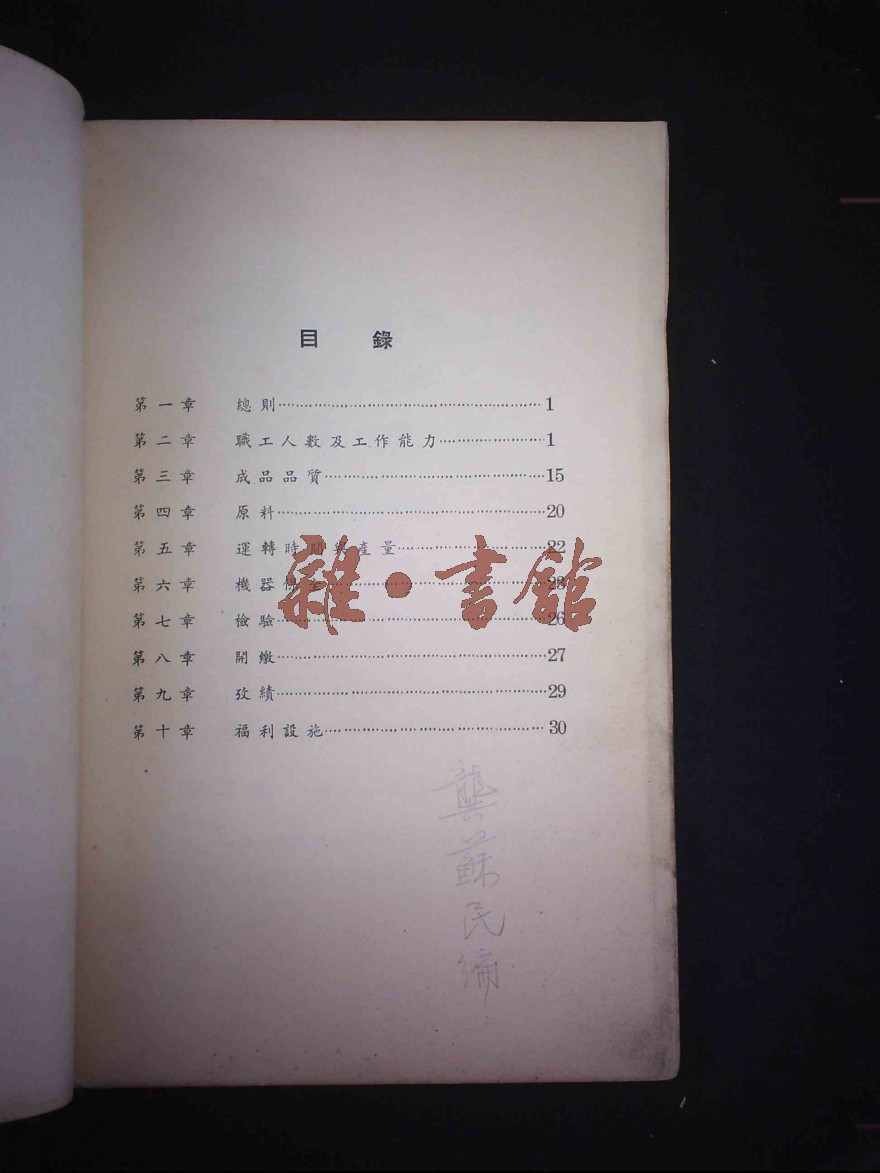 目錄
第一章 總則……1
第二章 職工人數及工作能力……1
第三章 成品品質……15
第四章 原料……20
第五章 運轉時間與產量……22
第六章 機器……23
第七章 檢驗……26
第八章 開繳……27
第九章 攷績……29
第十章 福利設施……30
雜·書館
龔蘇民編